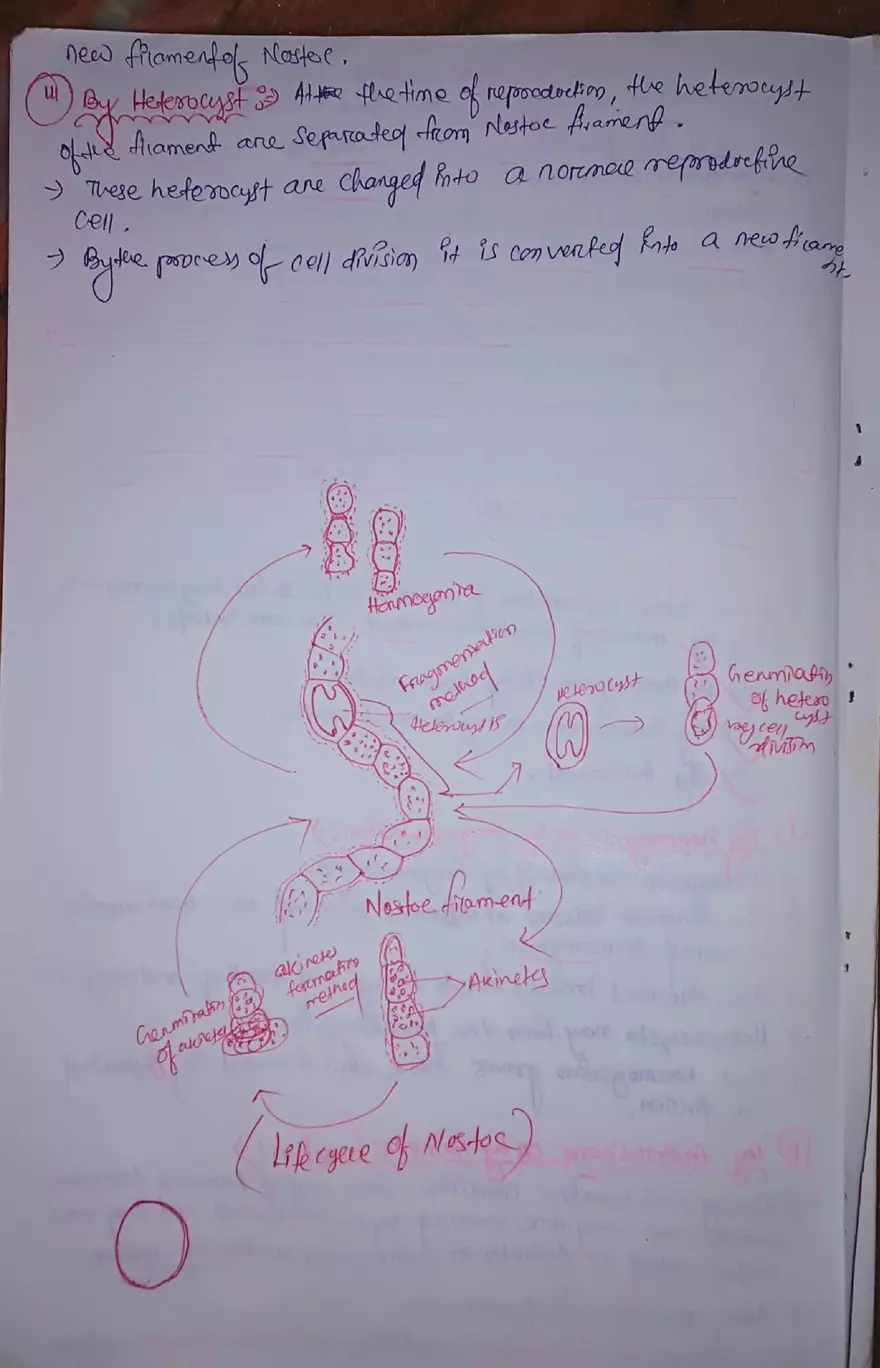 new filament of Nostoc.
(iii) By Heterocyst :→ At the time of reproduction, the heterocyst
of the filament are separated from Nostoc filament.
→ These heterocyst are changed into a normal reproductive
cell.
→ By the process of cell division it is converted into a new filame
nt
Hormogonia
Fragmentation
method
Heterocysts
Heterocyst
Germinatin
of hetero
cyst
by cell
division
Nostoc filament
akinetes
formation
method
Akinetes
Germination
of akinetes
(Life cycle of Nostoc)